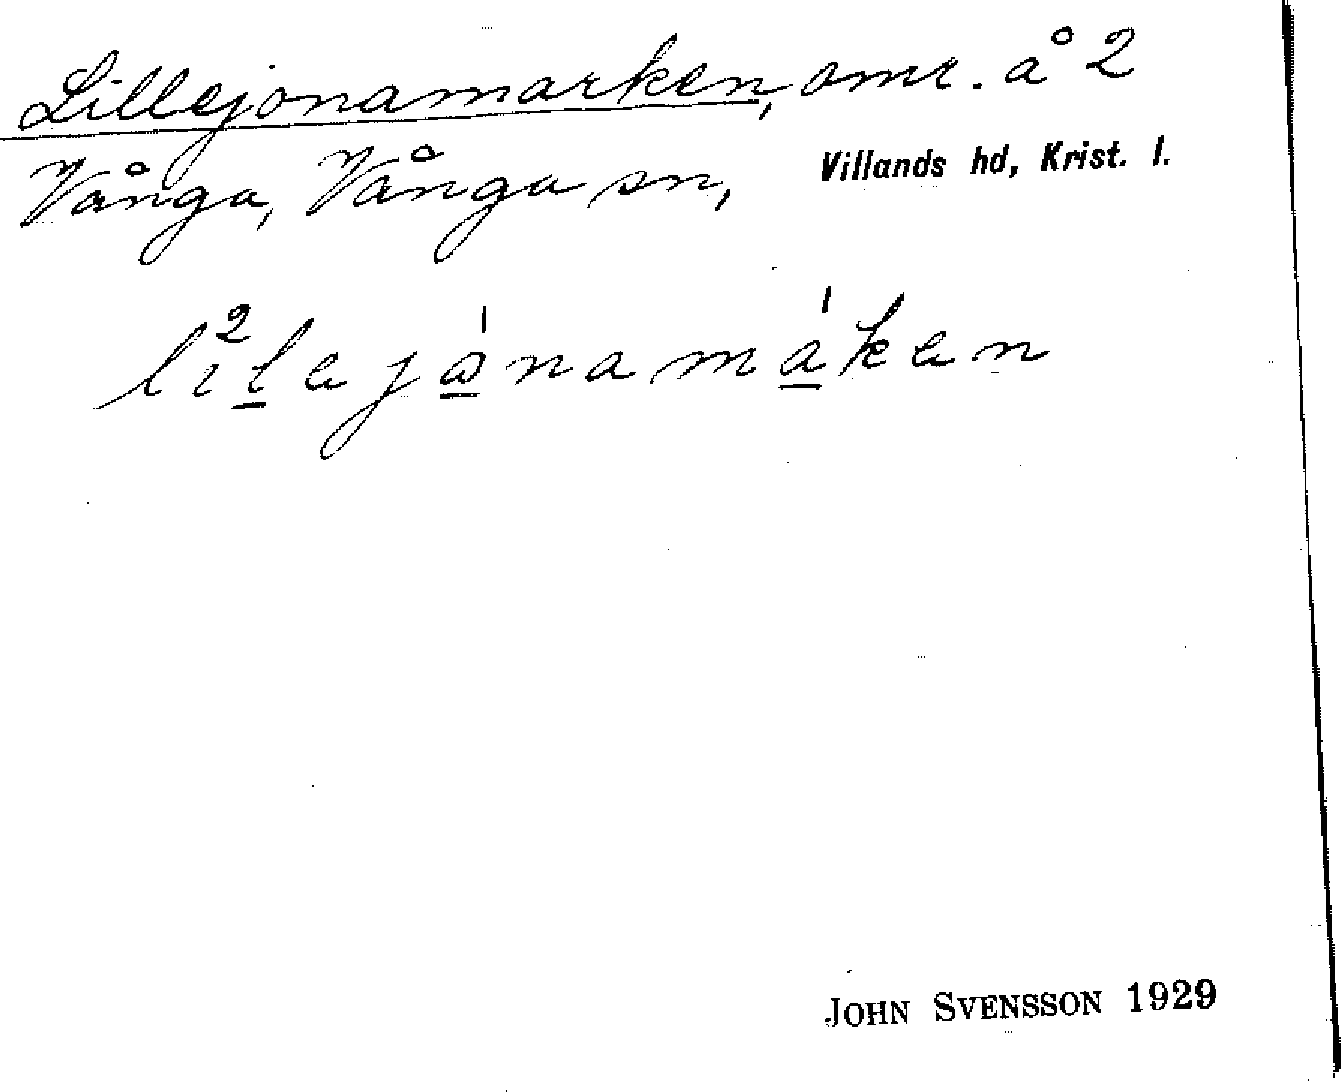 Lillejonamarken, omr. å 2
Vånga, Vånga sn, Villands hd, Krist. l.
li²l̲eja̲ˈnama̲ˈken
JOHN SVENSSON 1929